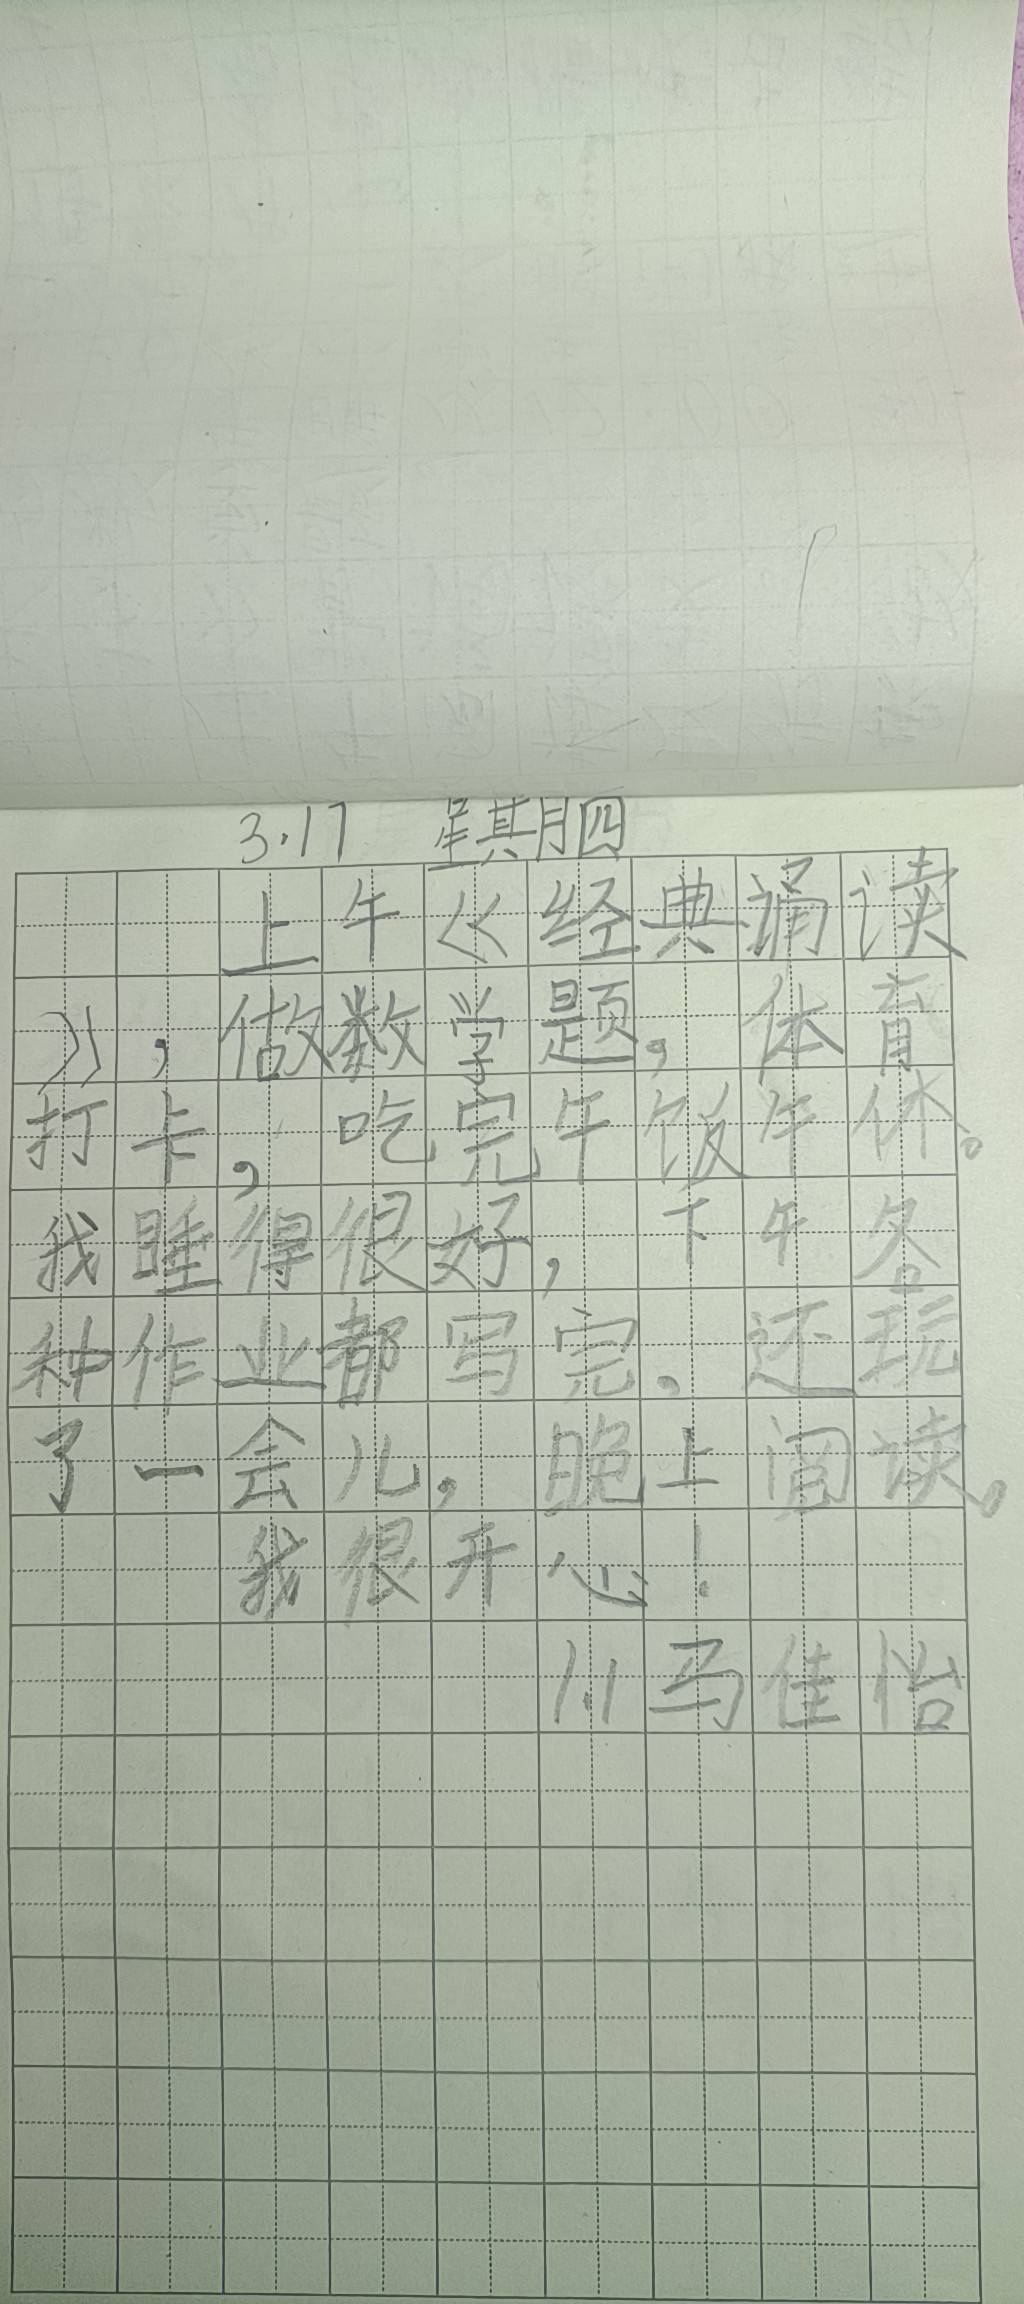 3.17 星期四
上午《经典诵读
》,做数学题,体育
打卡,吃完午饭午休。
我睡得很好,下午各
种作业都写完,还玩
了一会儿,晚上阅读。
我很开心!
1.1马佳怡